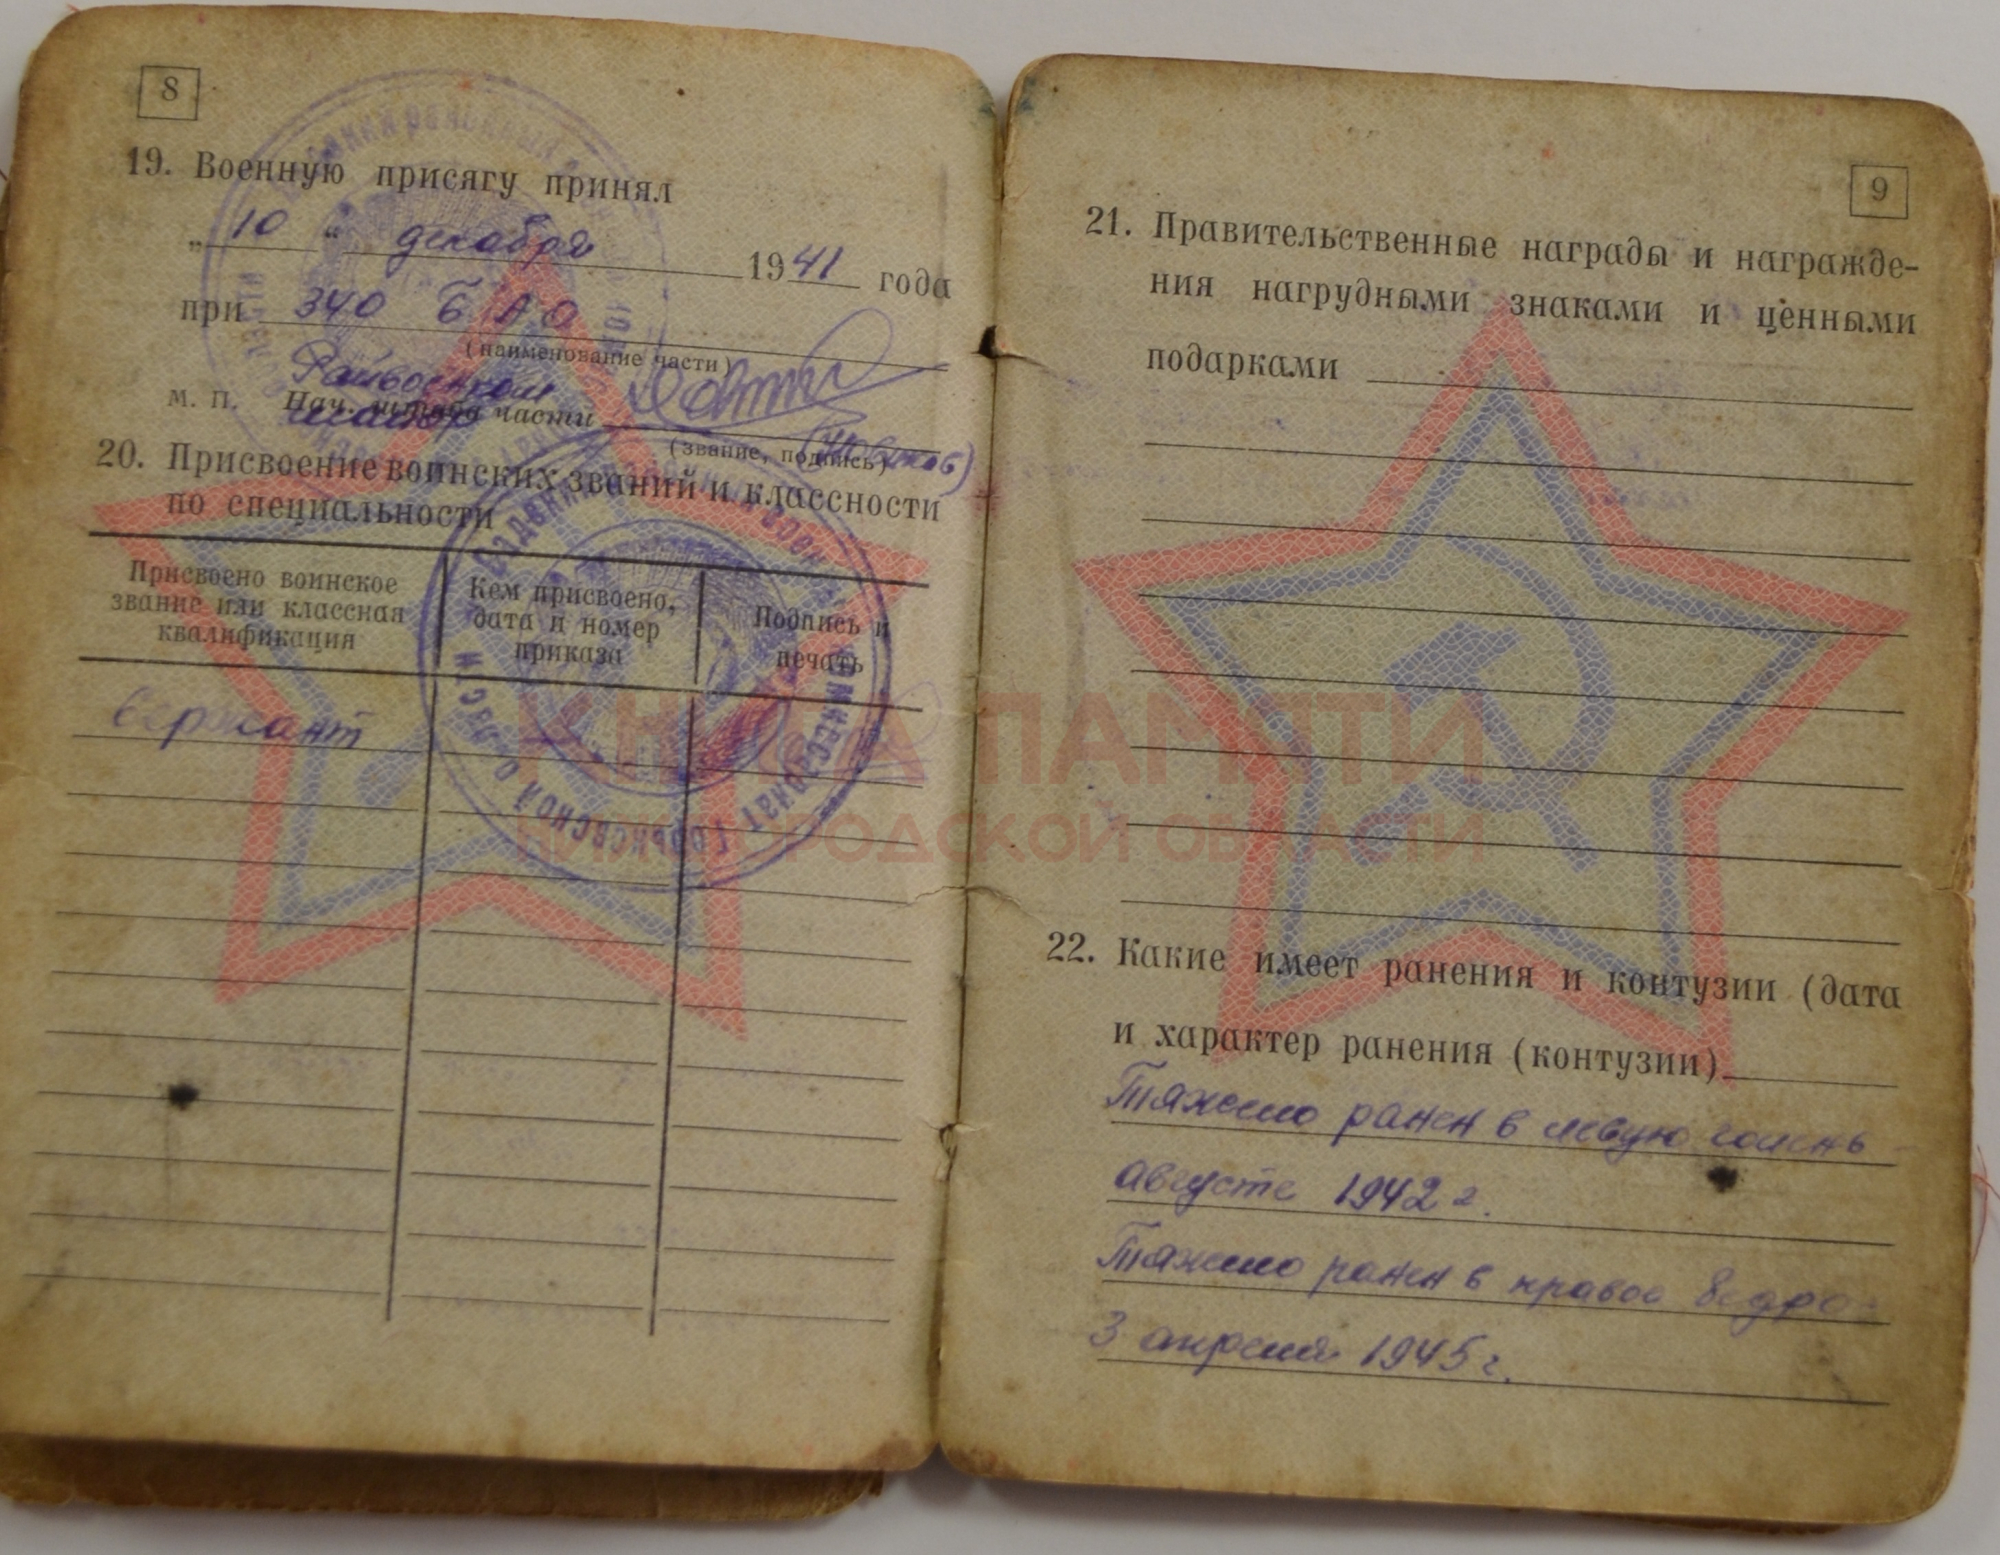 8
19. Военную присягу принял
„ 10 “ декабря 1941 года
при 340 БАО
(наименование части)
Райвоенком
м. п. Нач. штаба части
майор
(звание, подпись)
20. Присвоение воинских званий и классности
по специальности
Присвоено воинское
звание или классная
квалификация
Кем присвоено,
дата и номер
приказа
Подпись и
печать
сержант
комиссариат Горьковской области
9
21. Правительственные награды и награжде-
ния нагрудными знаками и ценными
подарками
22. Какие имеет ранения и контузии (дата
и характер ранения (контузии)
Тяжело ранен в левую голень
августе 1942 г.
Тяжело ранен в правое бедро
3 апреля 1945 г.
КНИГА ПАМЯТИ
НИЖЕГОРОДСКОЙ ОБЛАСТИ